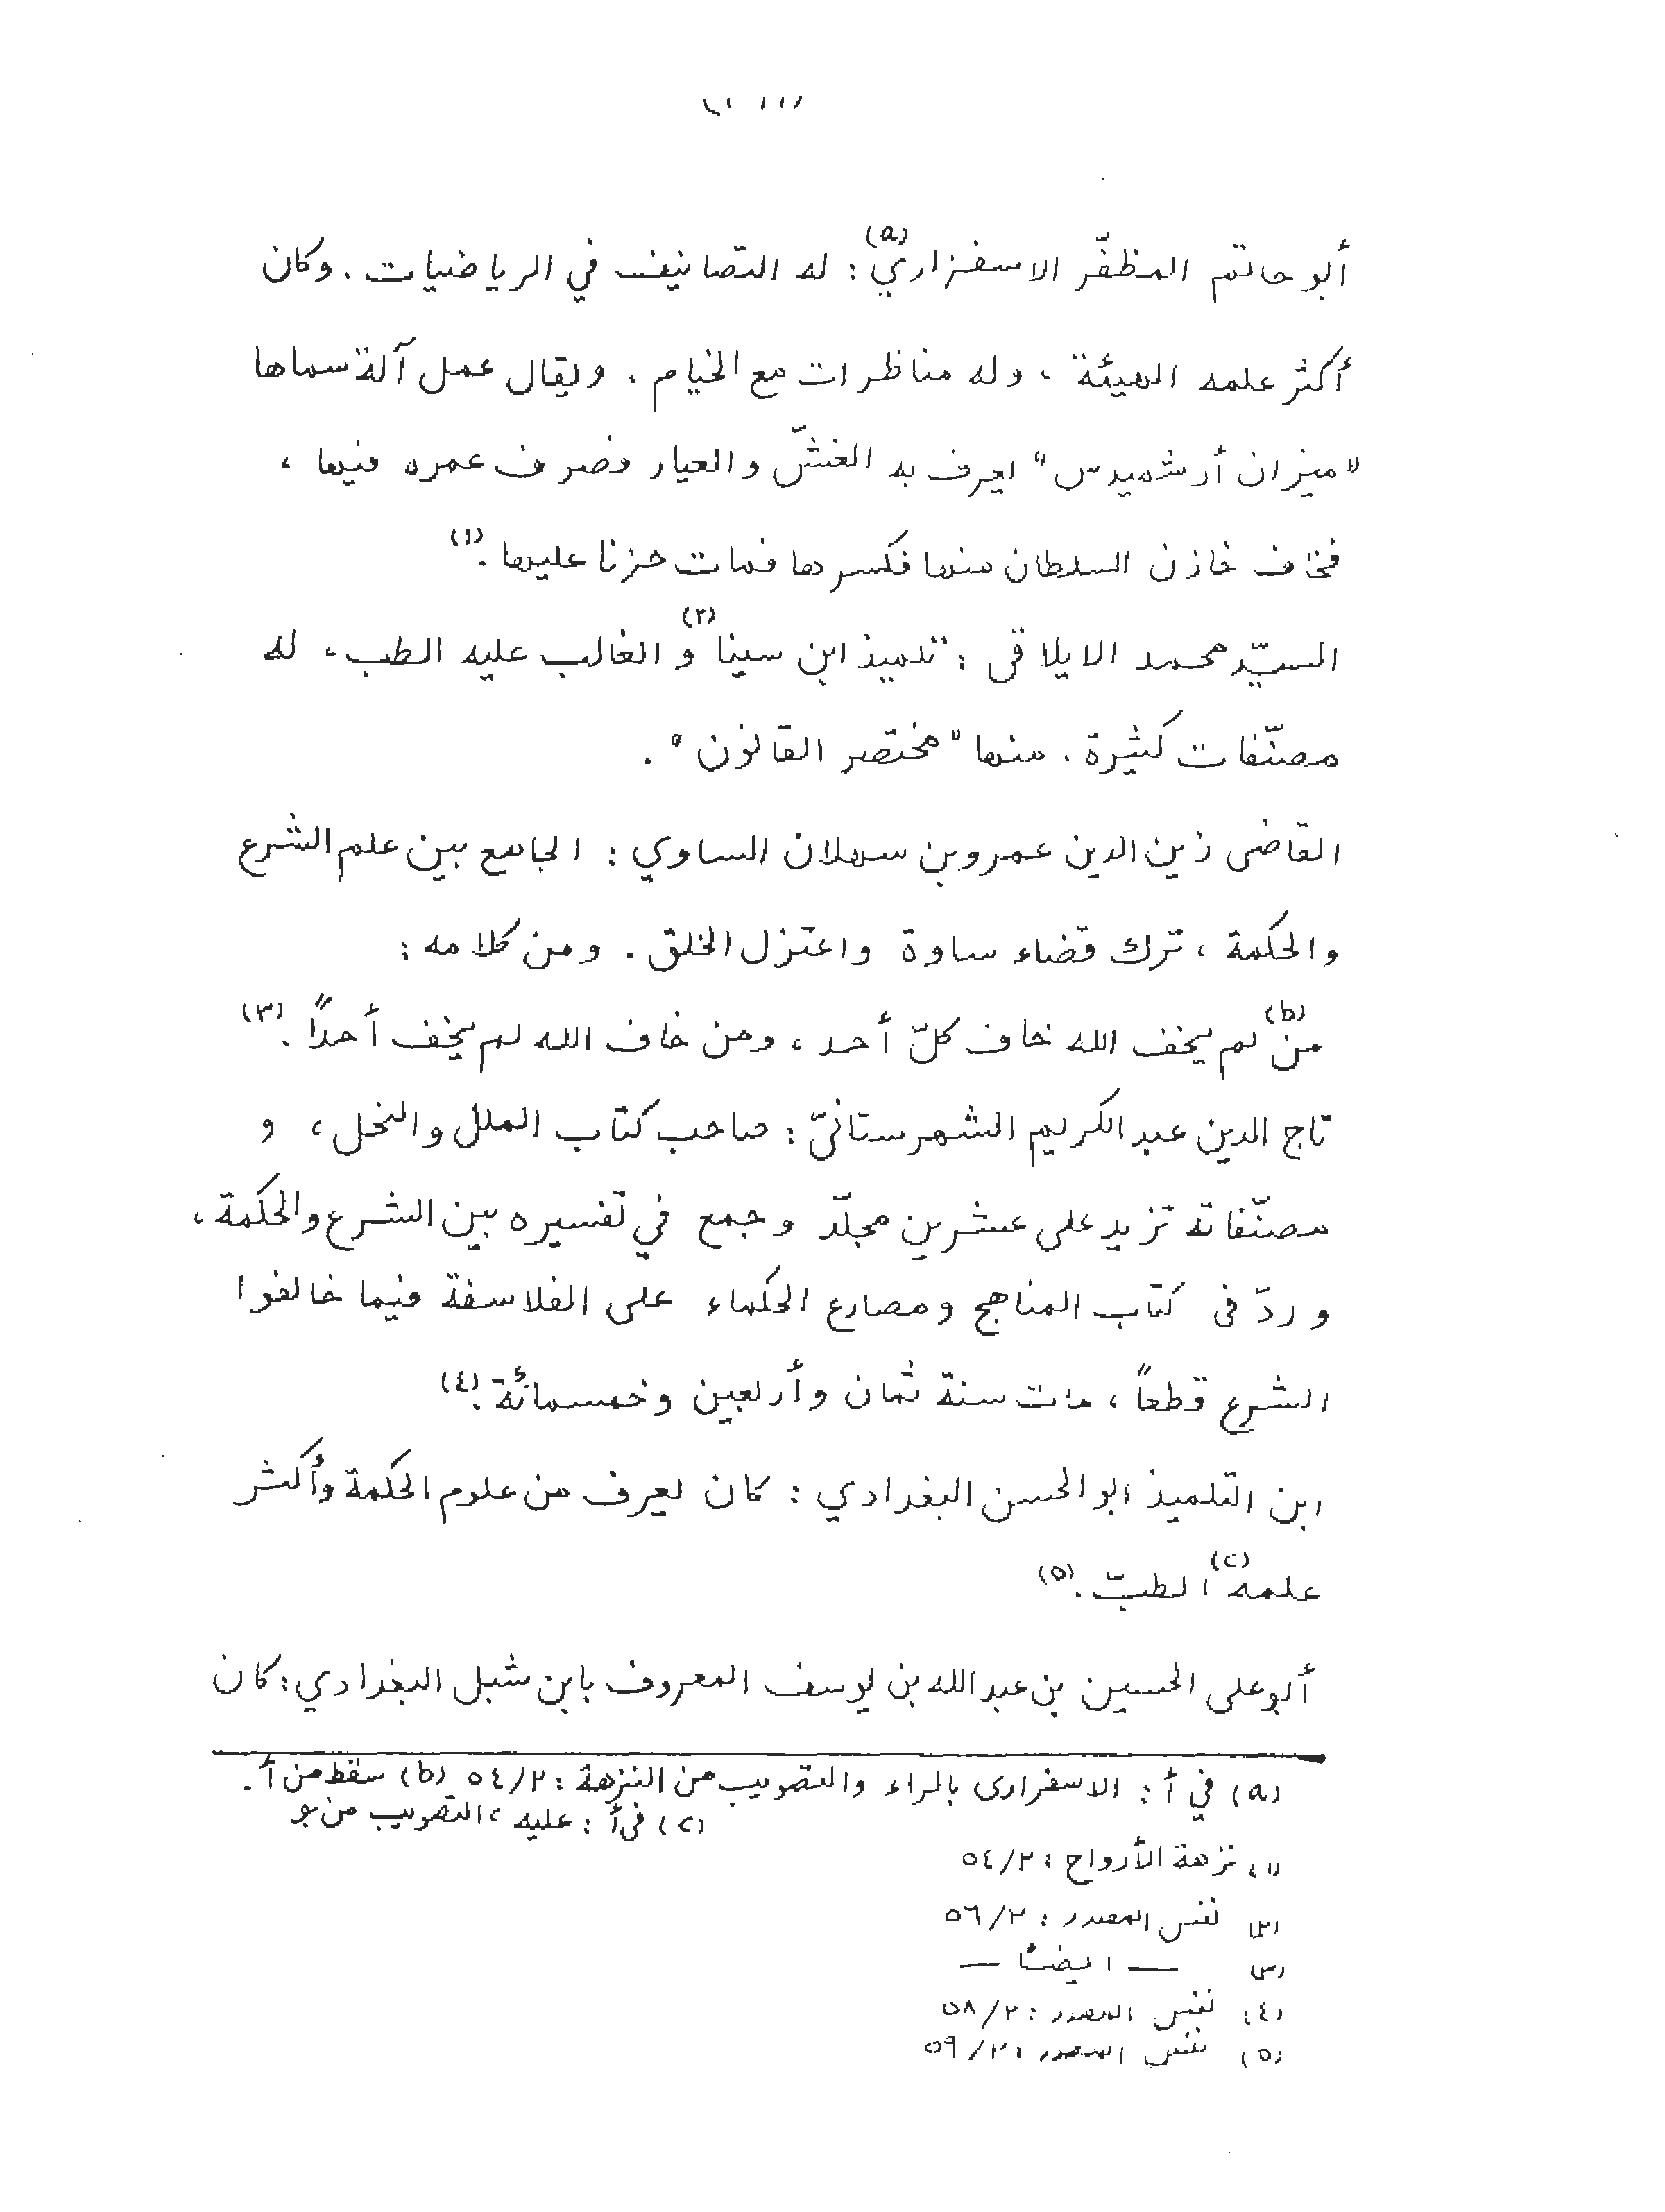 أبو حاتم المظفّر الاسفزاري(a) : له التصانيف في الرياضيات . وكان
أكثر علمه الهيئة ، وله مناظرات مع الخيام . ويقال عمل آلة سماها
"ميزان أرشميدس" يعرف به الغشّ والعيار فصرف عمره فيها ،
فخاف خازن السلطان منها فكسرها فمات حزنا عليها .(١)
السيّد محمد الايلاقى : تلميذ ابن سينا(٢) و الغالب عليه الطب ، له
مصنّفات كثيرة . منها "مختصر القانون" .
القاضى زين الدين عمرو بن سهلان الساوي : الجامع بين علم الشرع
والحكمة ، ترك قضاء ساوة واعتزل الخلق . ومن كلامه :
من(b) لم يخف الله خاف كلّ أحد ، ومن خاف الله لم يخف أحداً .(٣)
تاج الدين عبد الكريم الشهرستانىّ : صاحب كتاب الملل والنحل ، و
مصنّفاته تزيد على عشرين مجلّد وجمع في تفسيره بين الشرع والحكمة ،
وردّ فى كتاب المناهج ومصارع الحكماء على الفلاسفة فيما خالفوا
الشرع قطعاً ، مات سنة ثمان وأربعين وخمسمائة .(٤)
ابن التلميذ ابو الحسن البغدادي : كان يعرف من علوم الحكمة وأكثر
علمه(c) الطبّ .(٥)
أبو على الحسين بن عبد الله بن يوسف المعروف بابن شبل البغدادي : كان
(a) في أ : الاسفرارى بالراء والتصويب من النزهة : ٥٤/٢ (b) سقط من أ .
(c) فى أ : عليه ، التصويب من
(١) نزهة الأرواح : ٥٤/٢
(٢) نفس المصدر : ٥٦/٢
(٣) — ايضاً —
(٤) نفس المصدر : ٥٨/٢
(٥) نفس المصدر : ٥٩/٢